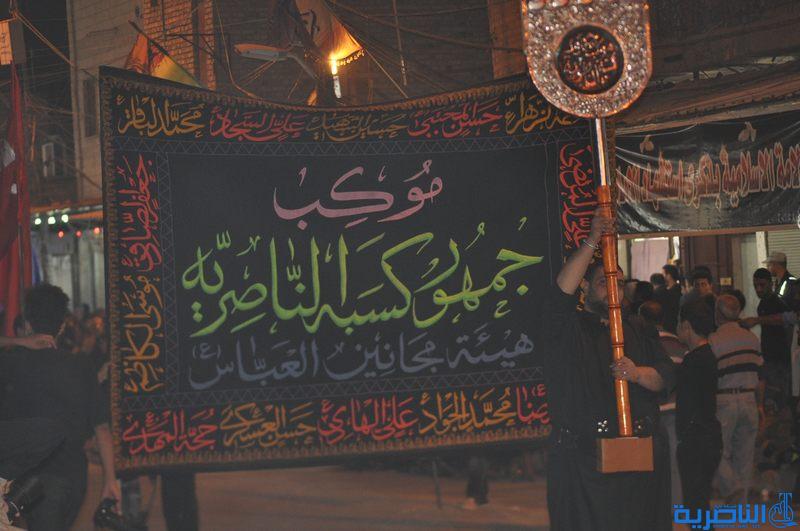 فاطمة الزهراء حسن المجتبى حسين الشهيد علي السجاد محمد الباقر
موكب
جمهور كسبة الناصرية
هيئة مجانين العباس ع
جعفر الصادق موسى الكاظم
الرضا محمد الجواد علي الهادي حسن العسكري محمد المهدي
الاسلامية بذكرى استشهاد
الناصرية